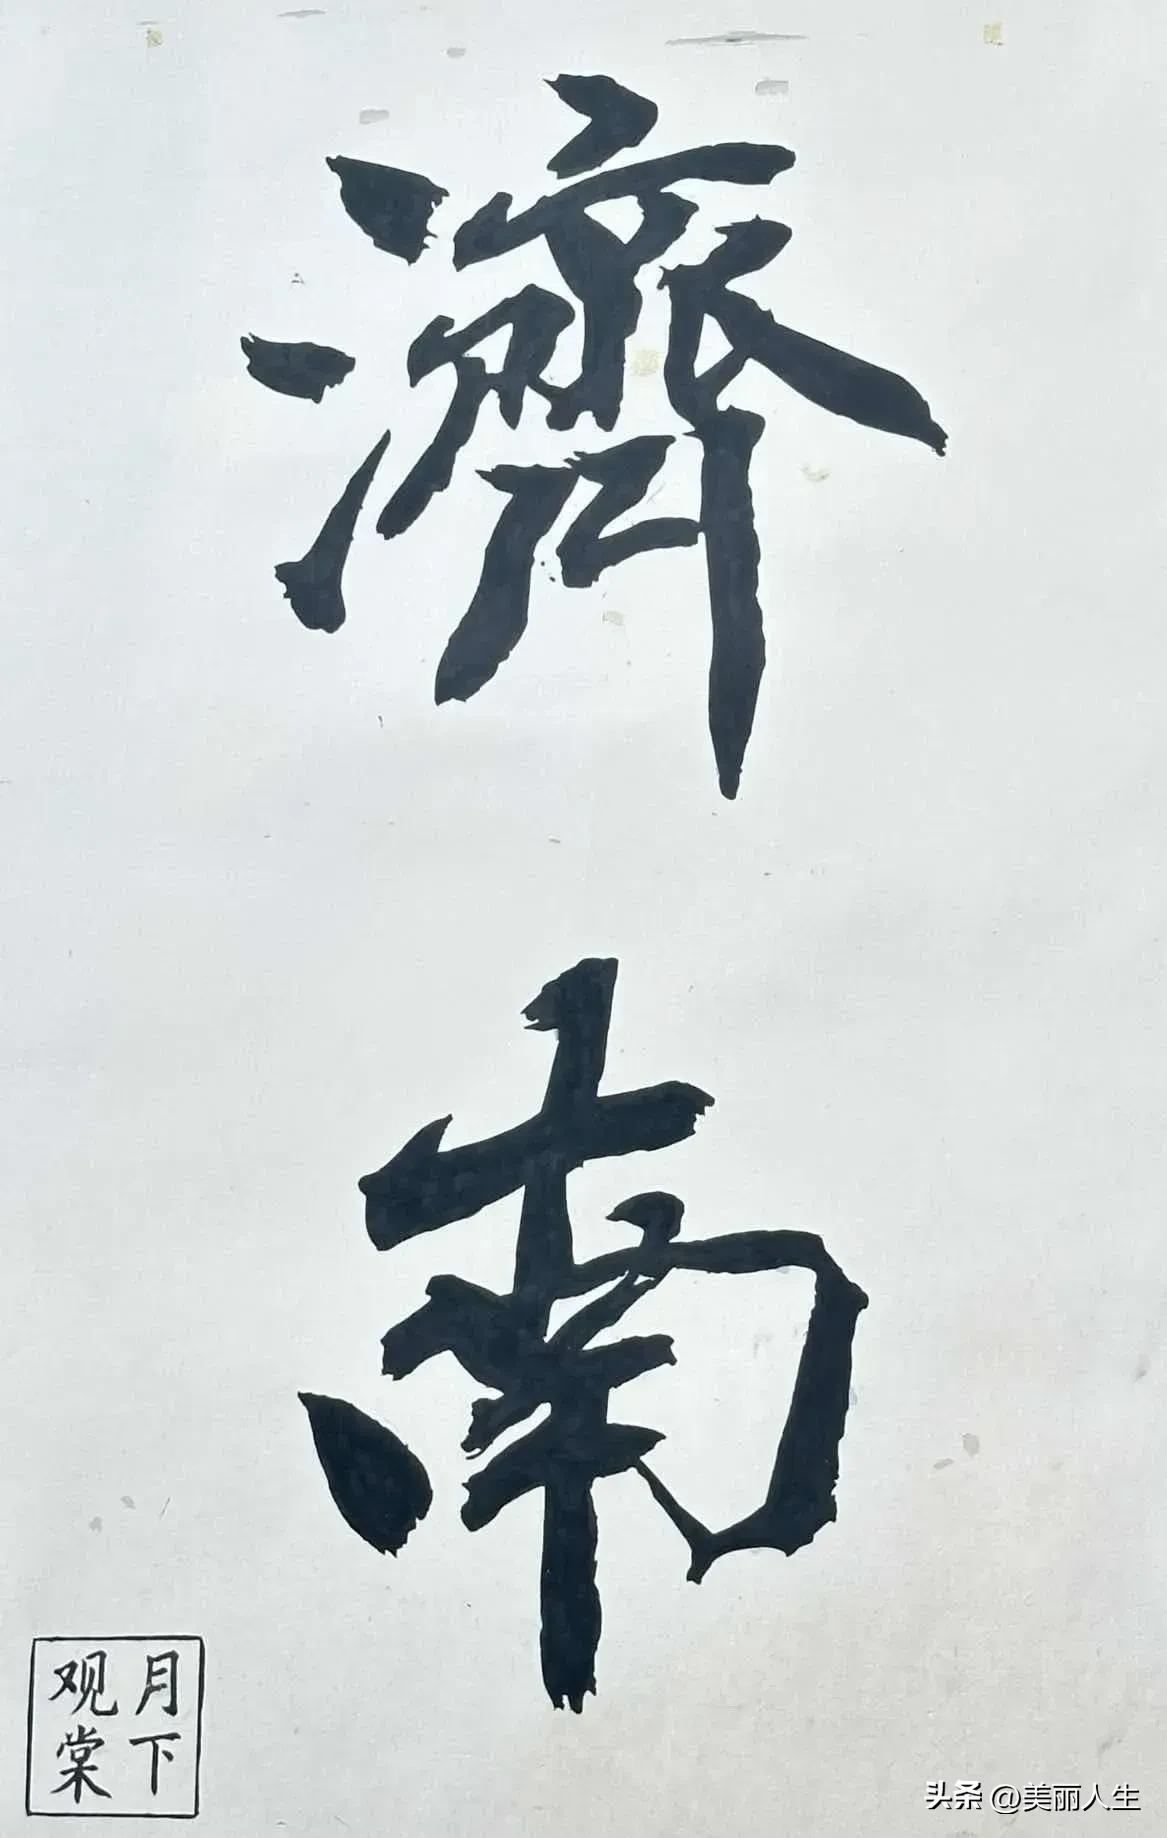 濟南
月下
观棠
头条 @美丽人生